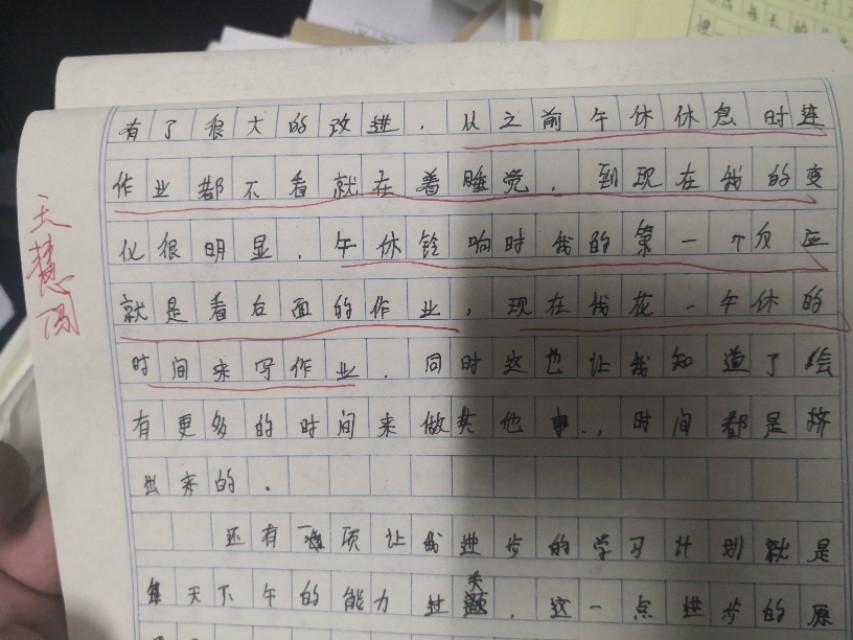 有了很大的改进，从之前午休休息时连
作业都不看就在着睡觉，到现在我的变
化很明显，午休铃响时我的第一个反应
就是看后面的作业，现在我花一午休的
时间来写作业．同时这也让我知道了
有更多的时间来做其他事，时间都是挤
出来的．
还有一项让我进步的学习计划就是
每天下午的能力过关，这一点进步的原